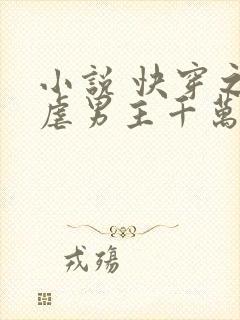 小說 快穿之
虐男主千萬
戎殤